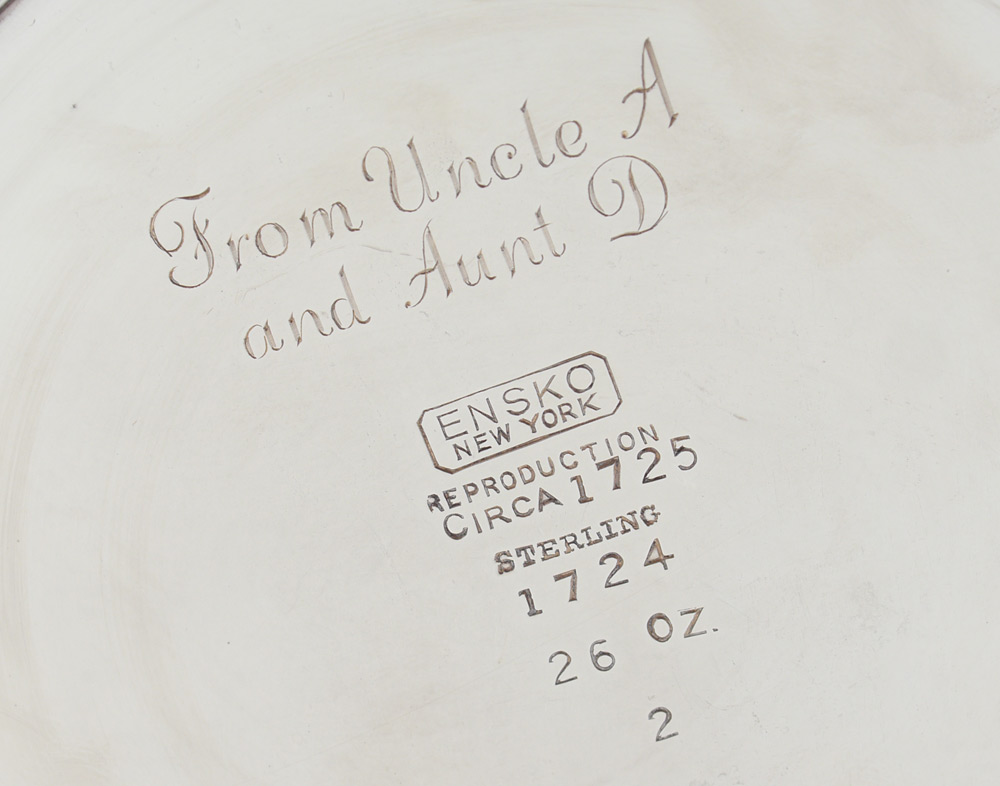 From Uncle A
and Aunt D
ENSKO
NEW YORK
REPRODUCTION
CIRCA 1725
STERLING
1724
26 OZ.
2